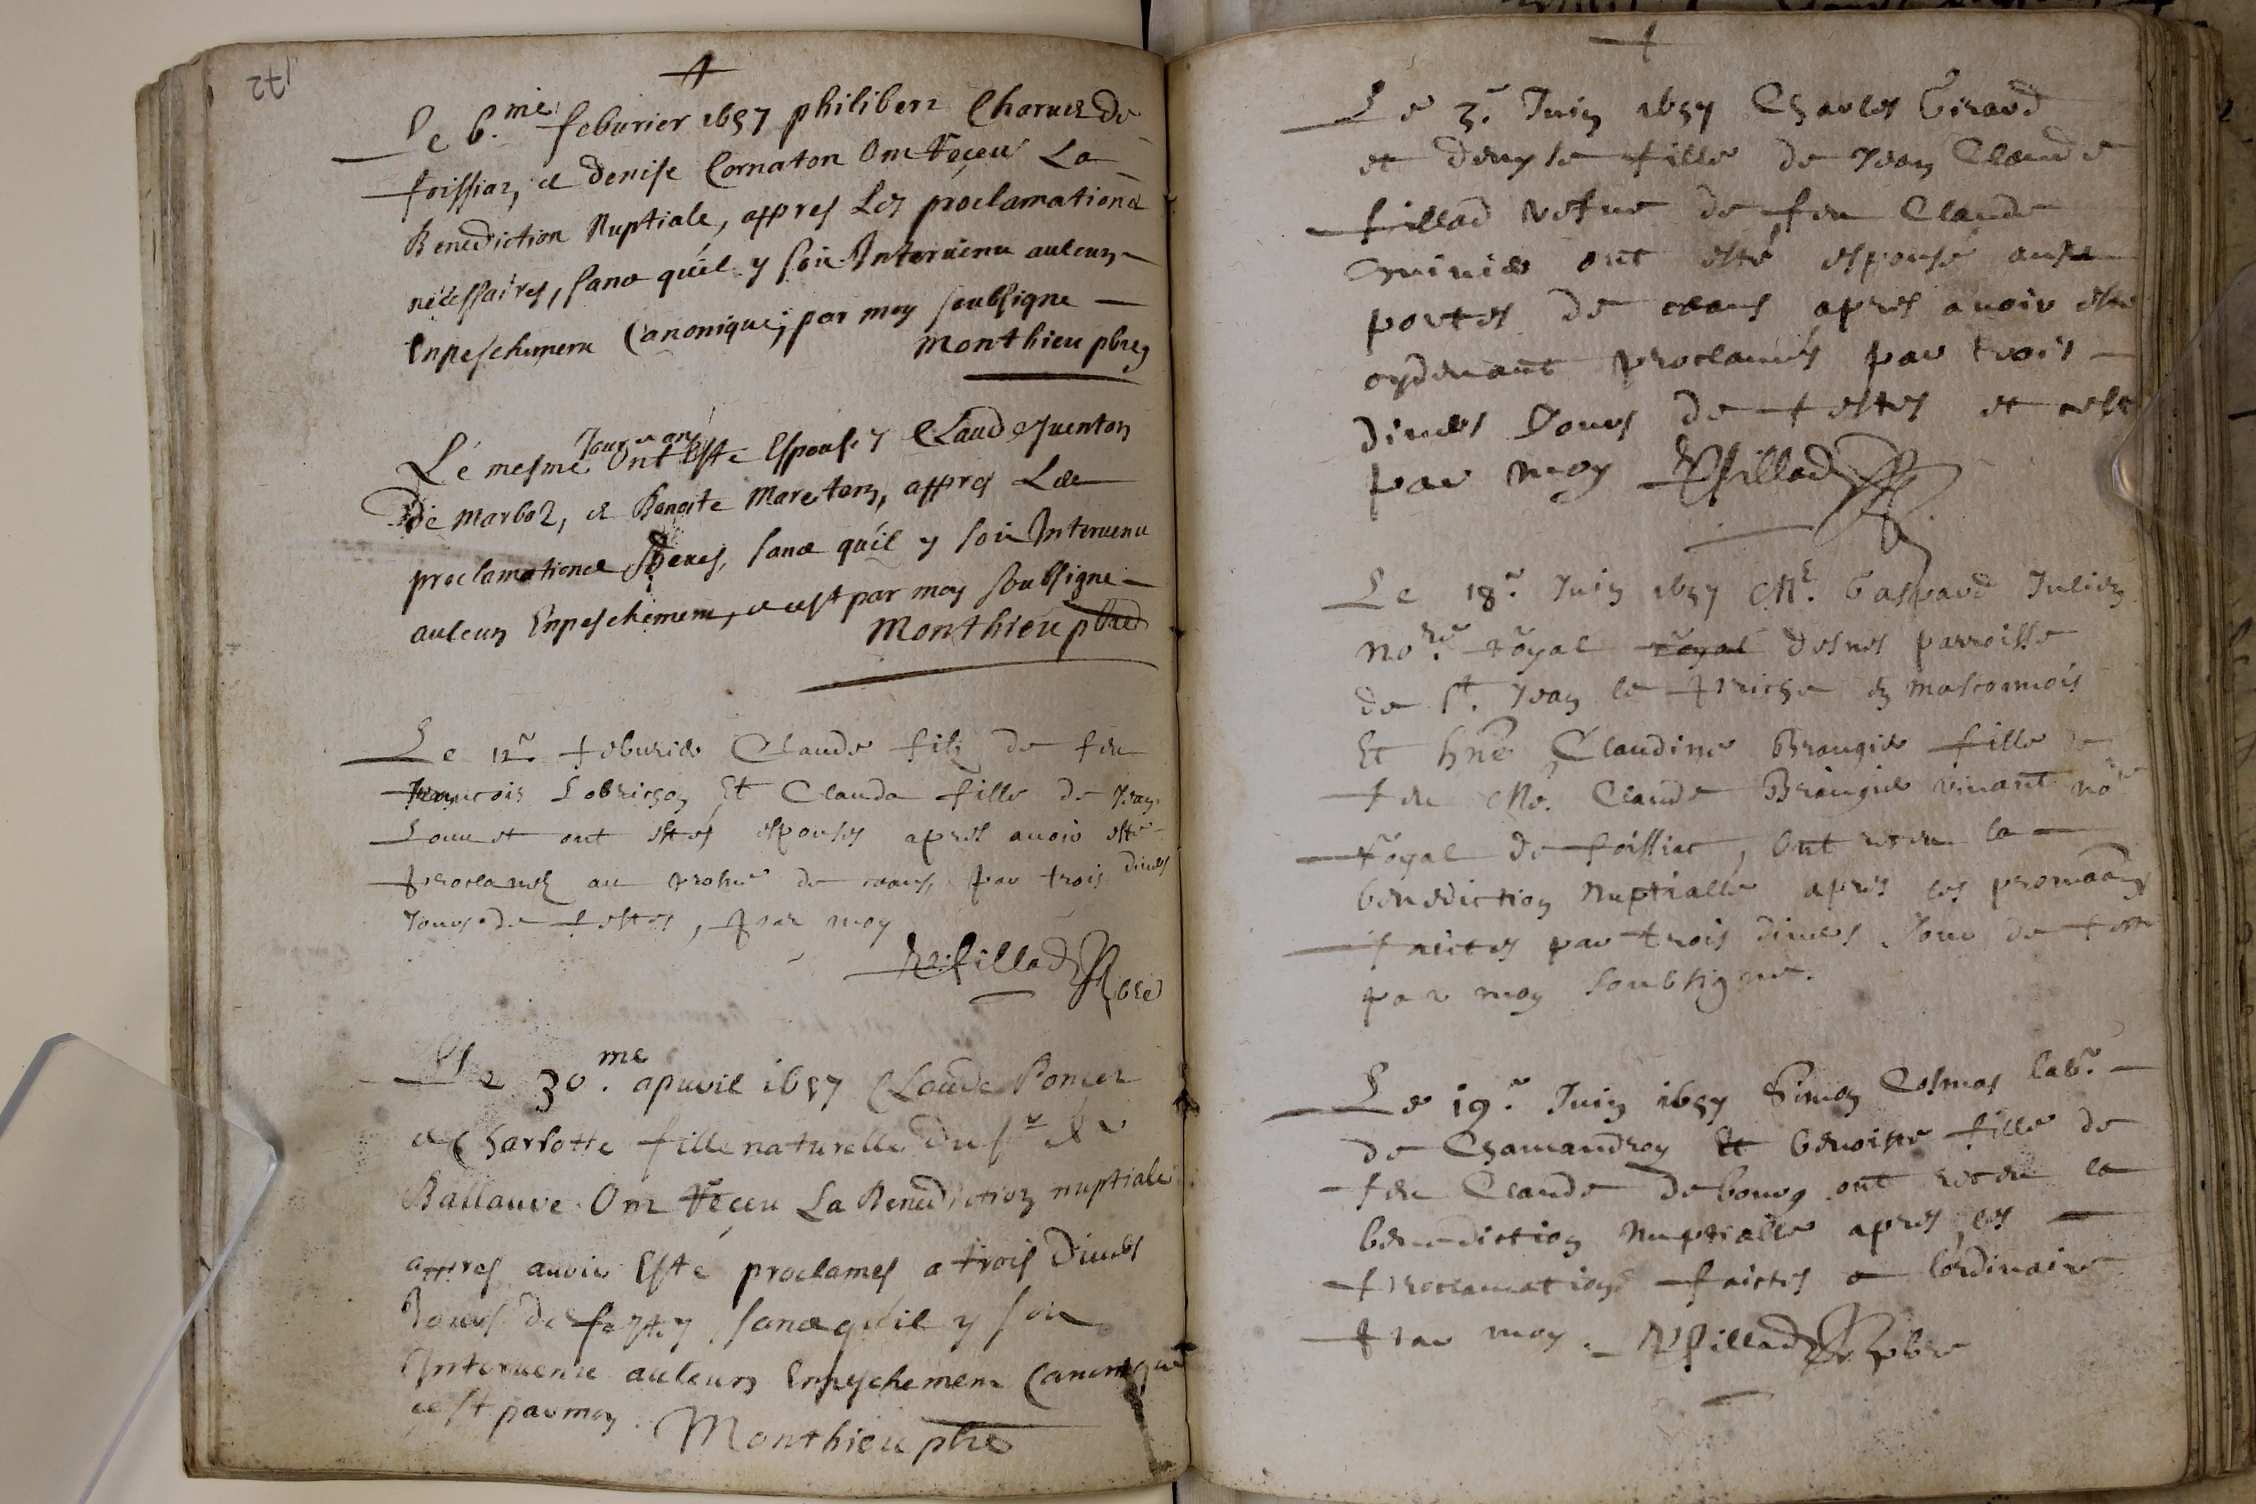 172
Le 6.me feburier 1657 philibert Charnet de
foissiaz, et denise Cornaton Ont Receu La
Benediction Nuptiale, appres Les proclamations
necessaires, sans quil y soit Intervenu aulcun
Enpeschement Canonique; par moy soubsigne
Monthieu pbre
Le mesme Jour Ont Esté Espousey Claude Juenton
De marboz, et Benoite Mareton, appres Les
proclamations sans quil y soit Intervenu
aulcun Enpeschement, et cest par moy soubsigne
Monthieu pbre
Le 12e. feburier Claude filz de feu
francois Lobrichon Et Clauda fille de Jean
Louuet ont estes espouses apres auoir esté
proclamez au prosne de ceans, par trois diuers
Jours de festes, par moy
fillad pbre
Le 30.me apuril 1657 Claude Poncet
et Charlotte fille naturelle du sr de
Ballauve Ont Receu La Benediction nuptiale
appres auoir Esté proclames a trois Diuers
Jours de festey sans quil y soit
Intervenu aulcun Enpeschement Canonique
cest par moy. Monthieu pbre
Le 3e. Juin 1657 Charles Girard
et denyse fille de Jean Claude
fillad vefue de feu Claude
ont esté espousé aux
portes de ceans apres auoir esté
cydeuant proclamés par trois
diuers Jours de festes et cest
par moy fillad
Le 18e. Juin 1657 Me. Gaspard Julien
nore. royal royal desnes parroisse
de St. Jean le priche en masconnois
Et hne Claudine Brangier fille de
feu Me. Claude Brangier viuant nore
royal de foissiat, Ont receu la
benediction Nuptialle apres les
faictes par trois diuers Jour de feste
par moy soubsigne.
Le 19e. Juin 1657 Simon Cosmas labr.
de Chamandrey Et benoiste fille de
feu Claude debourg ont receu la
benediction Nuptialle apres les
proclamations faictes a lordinaire
par moy. fillad pbre